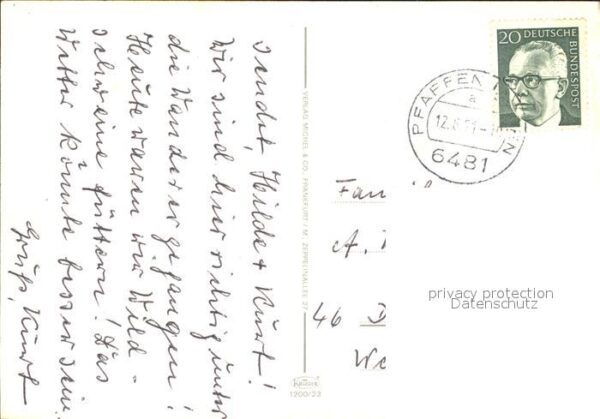 sendet, Hilde + Kurt!
Wir sind hier richtig unter
die Wanderer gegangen!
Heute waren wir Wild-
schweine füttern! Das
Wetter könnte besser sein.
Gruß, Kurt
VERLAG MICHEL & CO., FRANKFURT / M., ZEPPELINALLEE 27
KRÜGER
1200/22
20 DEUTSCHE
BUNDESPOST
PFAFFEN
a
12.6.71
6481
Fam
A.
46 D
We
privacy protection
Datenschutz